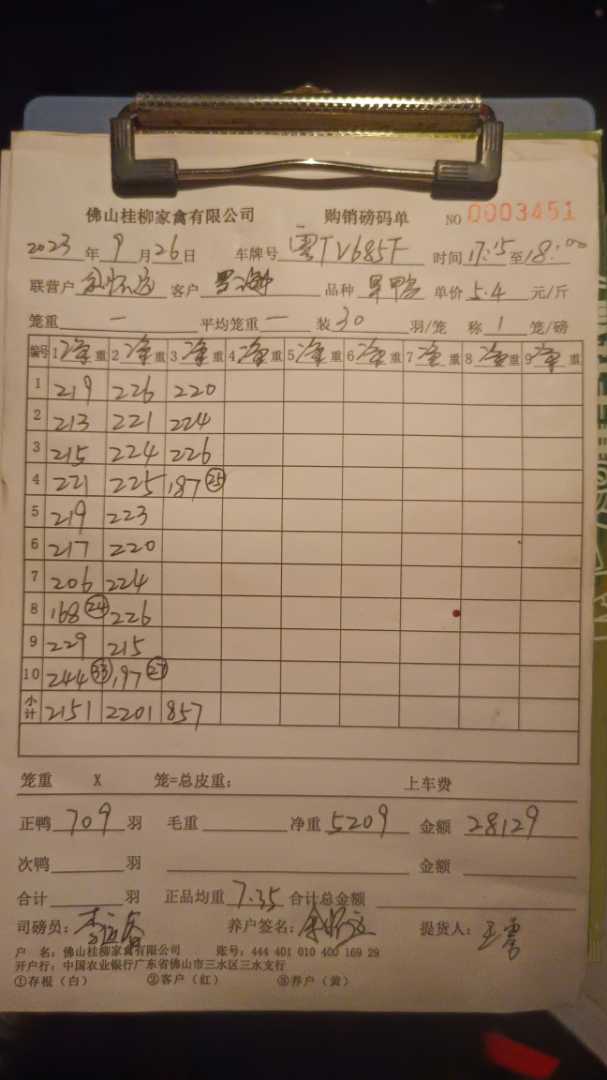 佛山桂柳家禽有限公司 购销磅码单 NO 0003451
2023年9月26日 车牌号 粤TV685F 时间17:15至18:00
联营户 客户 品种 单价5.4元/斤
笼重 一 平均笼重 一 装30羽/笼 称1笼/磅
编号 1净重 2净重 3净重 4净重 5净重 6净重 7净重 8净重 9净重
1 219 226 220
2 213 221 224
3 215 224 226
4 221 225 187 25
5 219 223
6 217 220
7 206 224
8 168 24 226
9 229 215
10 244 33 197 27
小计 2151 2201 857
笼重 X 笼=总皮重: 上车费
正鸭 709 羽 毛重 净重 5209 金额 28129
次鸭 羽 金额
合计 羽 正品均重 7.35 合计总金额
司磅员: 养户签名: 提货人:
户 名: 佛山桂柳家禽有限公司 账号: 444 401 010 400 169 29
开户行: 中国农业银行广东省佛山市三水区三水支行
①存根(白) ②客户(红) ③养户(黄)